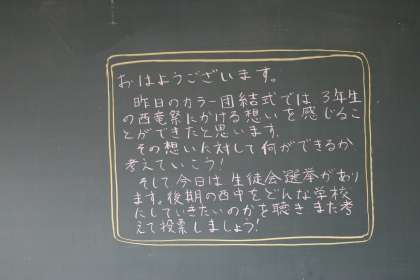 おはようございます。
昨日のカラー団結式では、3年生
の西竜祭にかける想いを感じるこ
とができたと思います。
その想いに対して何ができるか、
考えていこう!
そして今日は生徒会選挙があり
ます。後期の西中をどんな学校
にしていきたいのかを聴きまた考
えて投票しましょう!